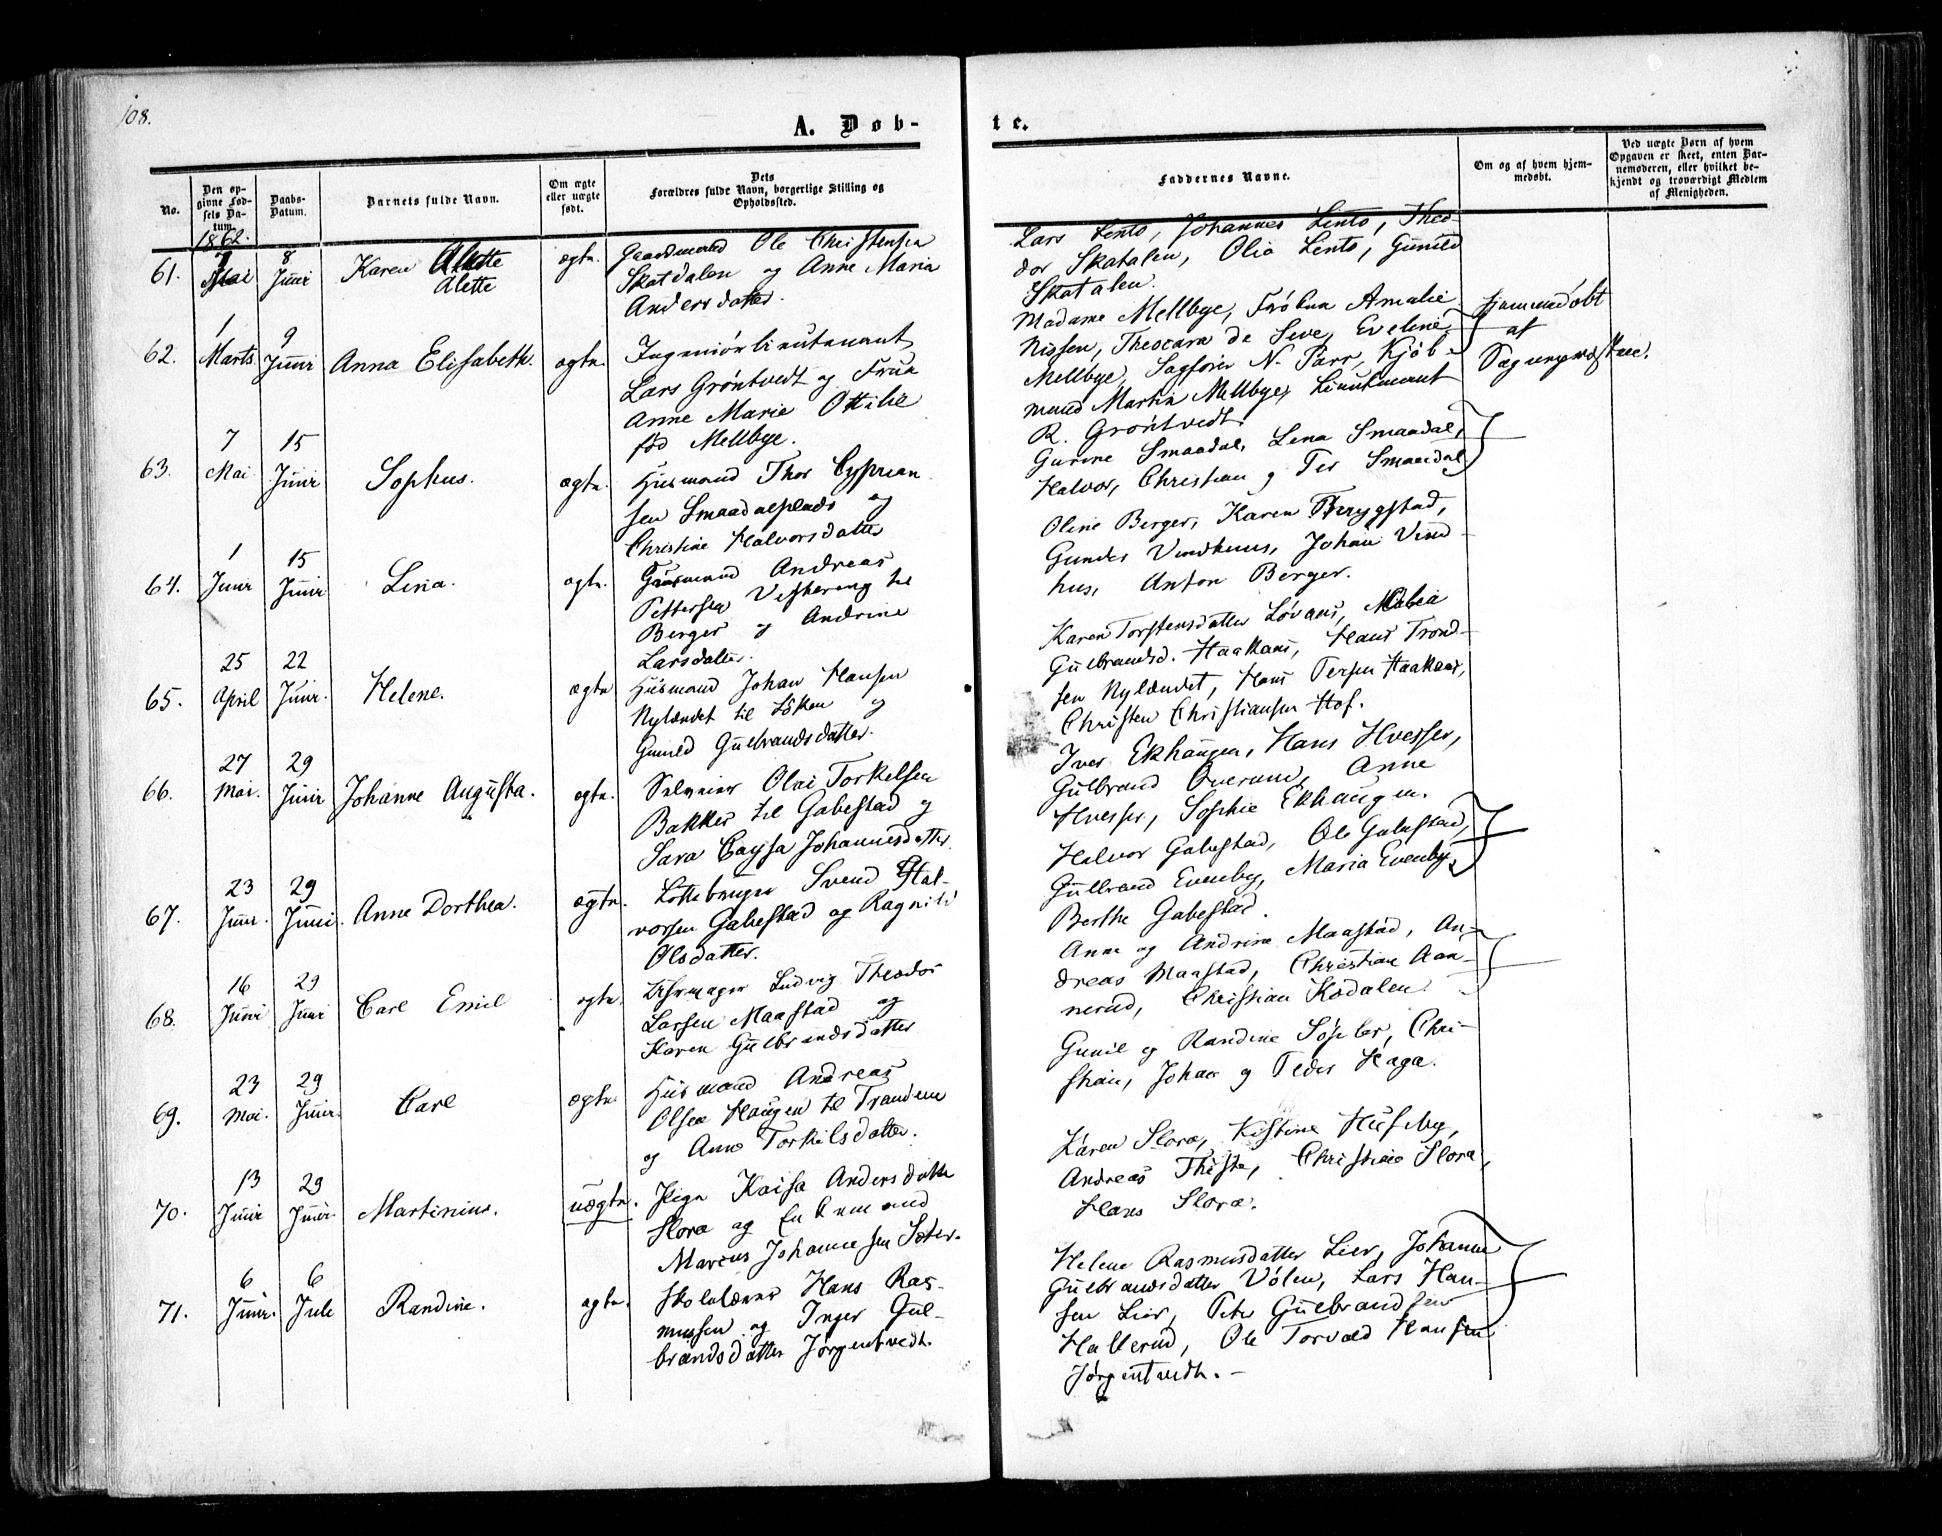 108.
A. Døb-
te.
No.
Den op-
givne Fød-
sels Da-
tum.
Daabs-
Datum.
Barnets fulde Navn.
Om ægte
eller uægte
født.
Dets
Forældres fulde Navn, borgerlige Stilling og
Opholdssted.
Faddernes Navne.
Om og af hvem hjem-
medøbt.
Ved uægte Børn af hvem
Opgaven er skeet, enten Bar-
nemoderen, eller hvilket be-
kjendt og troværdigt Medlem
af Menigheden.
1862.
61.
7
Mai
8
Juni
Karen Alette
Alette
ægte.
Gaardmand Ole Christensen
Skatdalen og Anne Maria
Andersdatter.
Lars Lento, Johannes Lento, Theo-
dor Skatalen, Olia Lento, Gunild
Skatalen.
62.
1
Marts
9
Juni
Anna Elisabeth.
ægte.
Ingeniørlieutenant
Lars Gröntvedt og Frue
Anne Marie Ottilie
fød Mellbye.
Madame Mellbye, Frøken Amalie
Nissen, Theocara de Seve, Eveline
Mellbye, Sagfører N. Parr, Kjøb-
mand Martin Mellbye, Lieutenant
R. Gröntvedt.
Hjemmedøbt
af
Sognepræsten.
63.
7
Mai
15
Juni
Sophus.
ægte.
Husmand Thor Cyprian
sen Smaadalsplads og
Christine Halvorsdatter
Gurine Smaadal, Lena Smaadal,
Halvor, Christian og Ter Smaadal
64.
1
Juni
15
Juni
Lina.
ægte.
Andreas
Pettersen Vestereng til
Berger og Andrine
Larsdatter.
Oline Berger, Karen Trygstad,
Gunder Vindhuus, Johan Vind-
hus, Anton Berger.
65.
25
April
22
Juni.
Helene.
ægte
Husmand Johan Hansen
Nylændet til Löken og
Gunild Gulbrandsdatter.
Karen Torstensdatter Løvaas, Maria
Gulbrandsd. Haakaas, Hans Trond-
sen Nylændet, Hans Persen Haakaas,
Christen Christiansen Hof.
66.
27
Mai.
29
Juni
Johanne Augusta.
ægte.
Selveier Olai Torkelsen
Bakker til Gabestad og
Sara Caysa Johannesdatter
Iver Ekhaugen, Hans Hvesser,
Gulbrand Överund, Anne
Hvesser, Sophie Ekhaugen.
67.
23
Juni.
29
Juni.
Anne Dorthea.
ægte.
Lottebruger Svend Hal-
vorsen Gabestad og Ragnild
Olsdatter.
Halvor Gabestad, Ole Gabestad,
Gulbrand Evenby, Maria Evenby,
Berthe Gabestad.
68.
16
Juni
29
Juni
Carl Emil
ægte.
Uhrmager Ludvig Theodor
Larsen Maastad og
Karen Gulbrandsdatter
Anne og Andrine Maastad, An-
dreas Maastad, Christian Aan-
nerud, Christian Kodalen.
69.
23
Mai.
29
Juni.
Carl
ægte.
Husmand Andreas
Olsen Haugen til Trandem
og Anne Torkilsdatter.
Gunil og Randine Søpler, Chri-
stian, Johan og Peder Haga.
70.
13
Juni
29
Juni.
Martinius.
uægte.
Pige Kaisa Andersdatter
Slora og Enkemand
Marcus Johannesen Sæter.
Karen Slora, Kistine Huseby,
Andreas Thiste, Christine Slora,
Hans Slora.
71.
6
Juni.
6
Juli
Randine.
ægte.
Skolelærer Hans Ras-
mussen og Inger Gul-
brandsdatter Jørgentvedt.
Helene Rasmusdatter Lier, Johanne
Gulbrandsdatter Völen, Lars Han-
sen Lier, Peter Gulbrandsen
Hallerud, Ole Torvald Hansen
Jørgentvedt. -